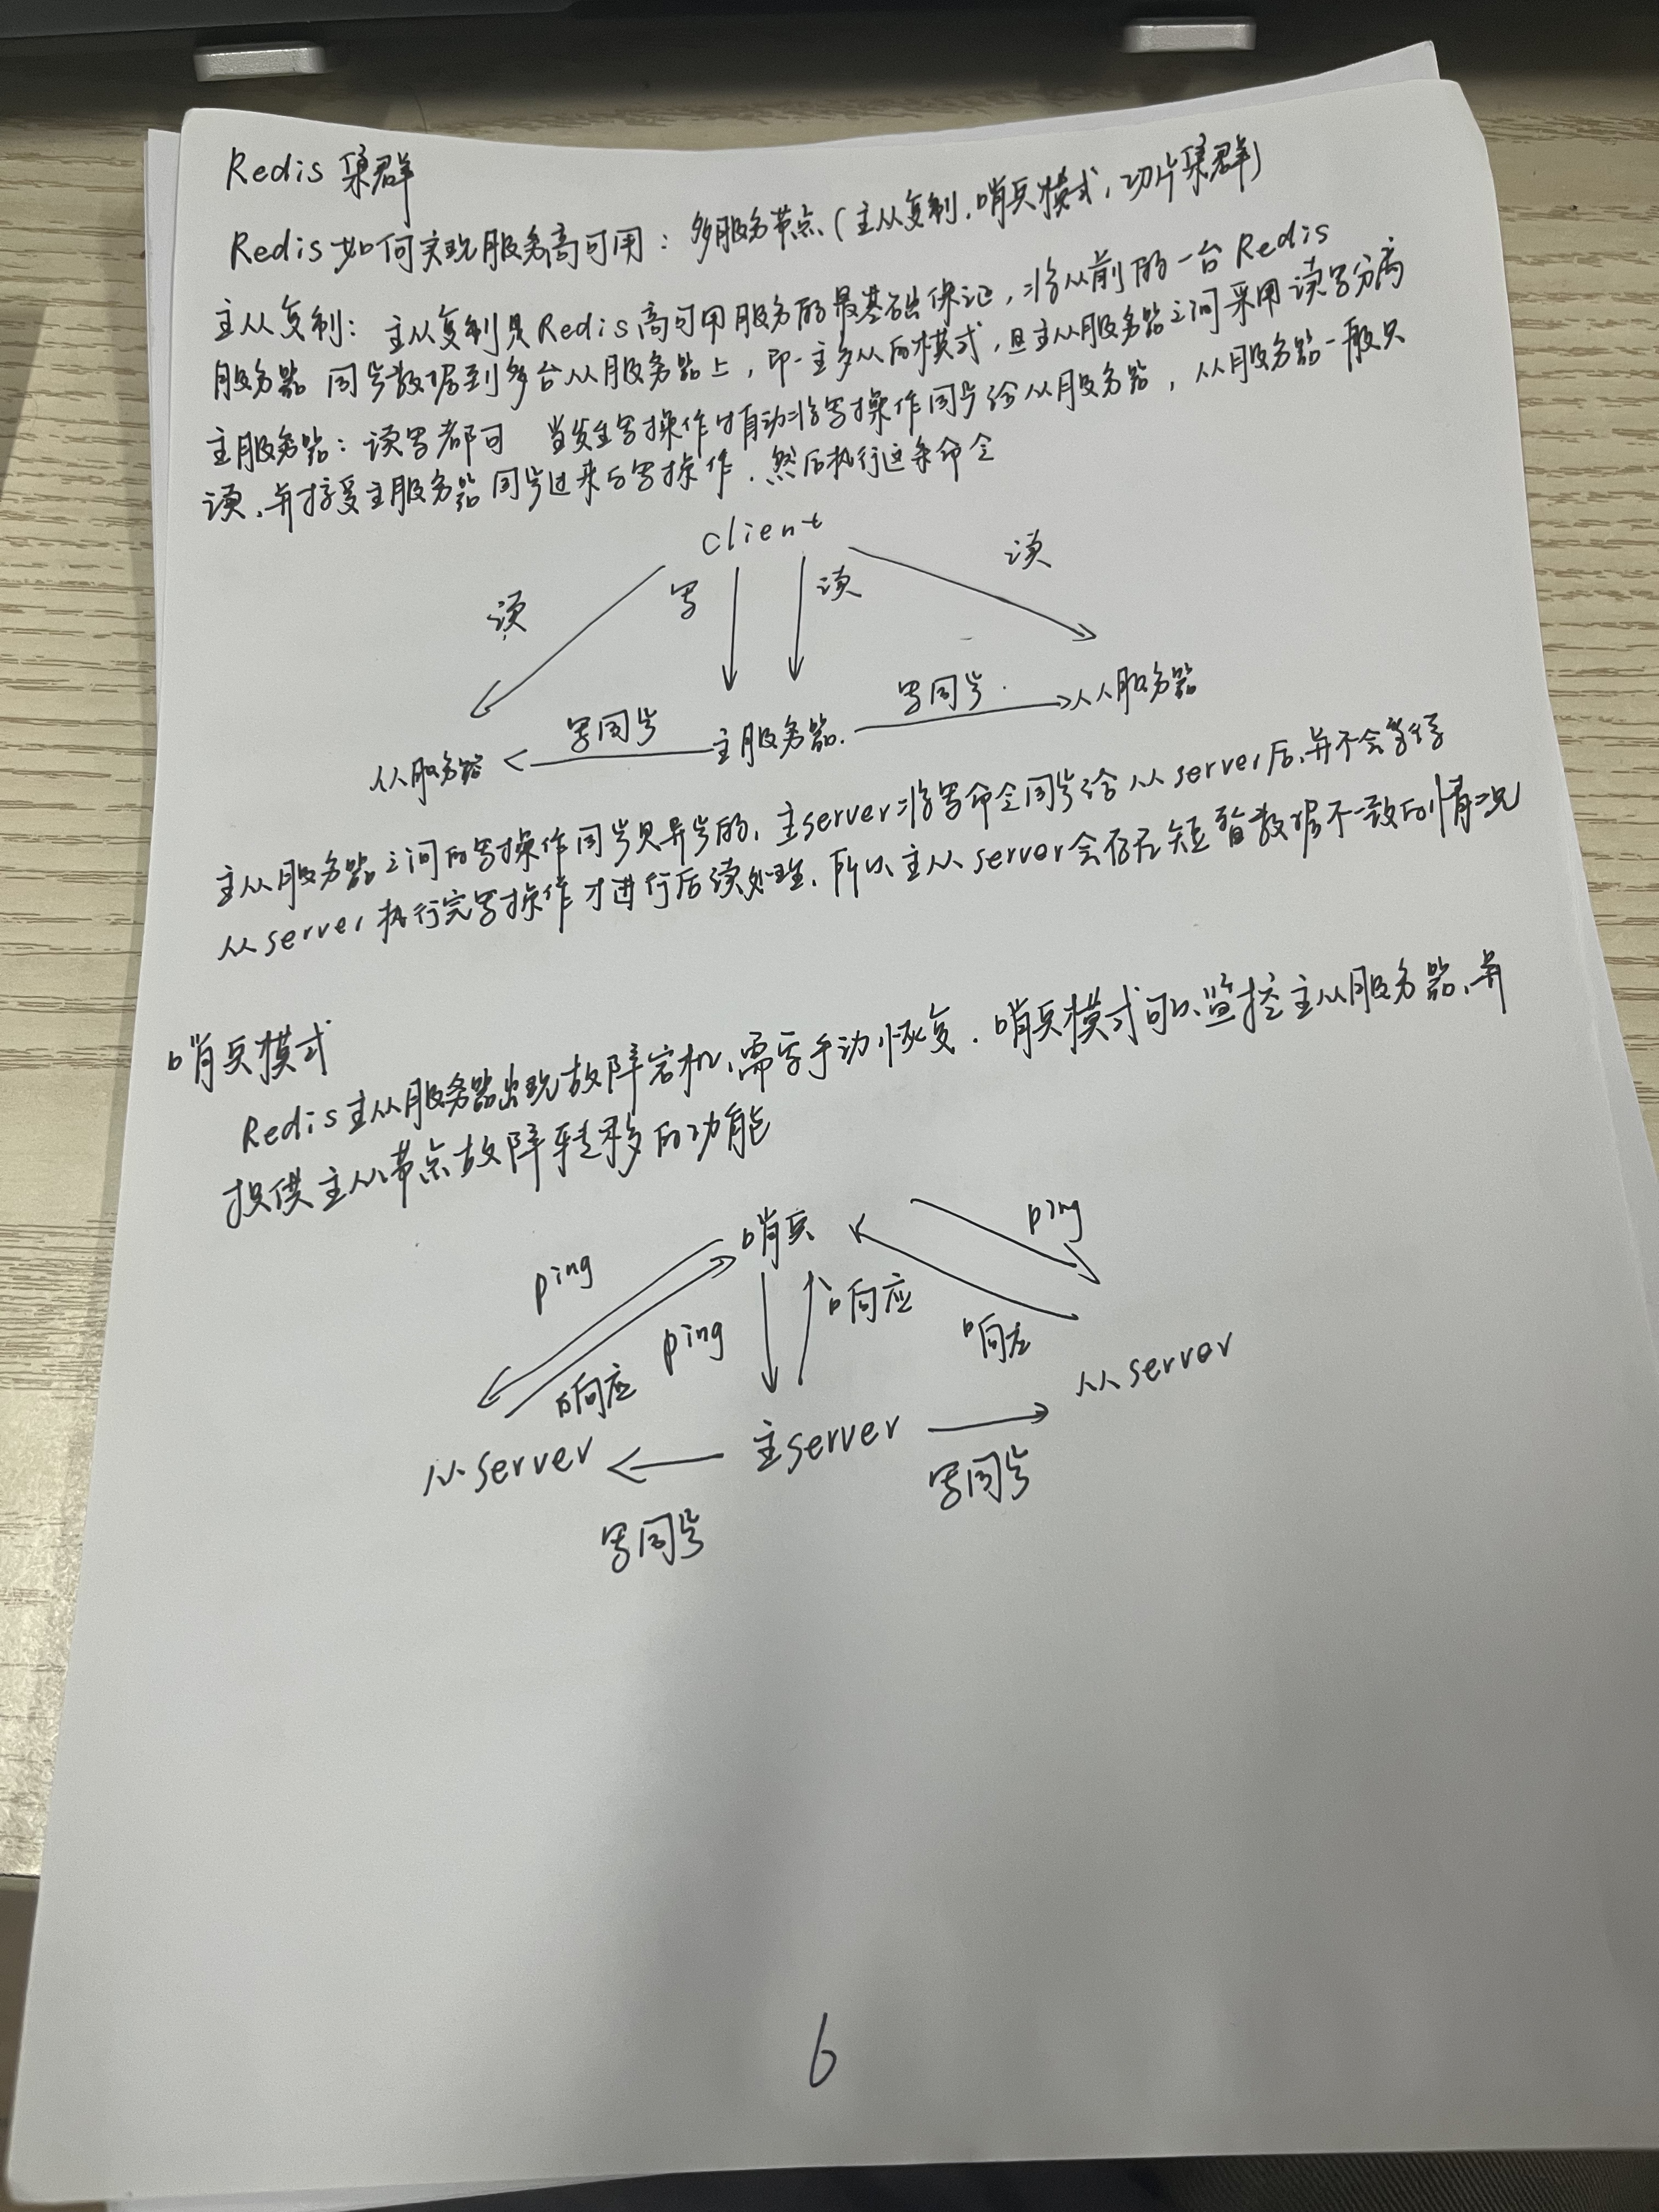 Redis 集群
Redis 如何实现服务高可用：多服务节点（主从复制，哨兵模式，切片集群）
主从复制：主从复制是Redis高可用服务的最基础保证，将从前的一台 Redis
服务器 同步数据到多台从服务器上，即一主多从的模式，且主从服务器之间采用读写分离
主服务器：读写都可 当发生写操作时自动将写操作同步给从服务器，从服务器一般只
读，并接受主服务器同步过来的写操作，然后执行这条命令
client
读
写
读
读
从服务器
写同步
主服务器
写同步
从服务器
主从服务器之间的写操作同步是异步的，主server将写命令同步给从server后，并不会等待
从server执行完写操作才进行后续处理，所以主从server会存在短暂数据不一致的情况
哨兵模式
Redis主从服务器出现故障宕机，需要手动恢复，哨兵模式可以监控主从服务器，并
提供主从节点故障转移的功能
哨兵
ping
响应
ping
响应
ping
响应
从server
主server
从server
写同步
写同步
6